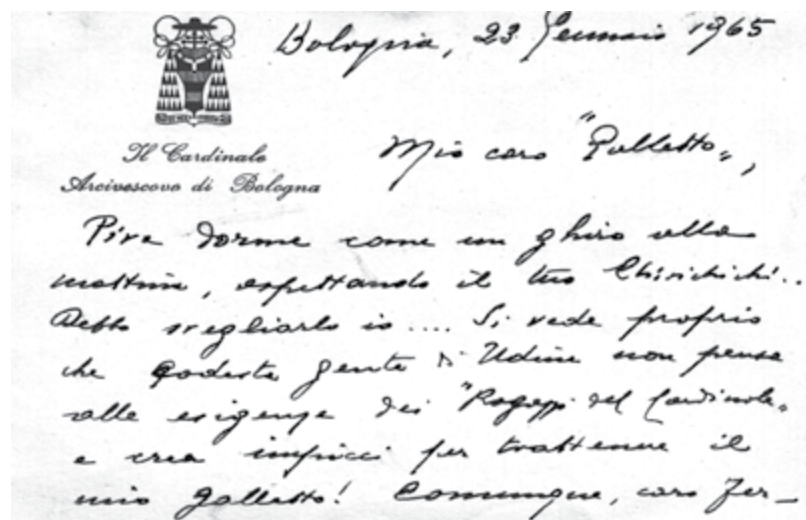 Bologna, 23 Gennaio 1965
Il Cardinale
Arcivescovo di Bologna
Mio caro "Galletto",
Piva dorme come un ghiro alla
mattina, aspettando il tuo Chirichichi..
Debbo svegliarlo io .... Si vede proprio
che codesta gente di Udine non pensa
alle esigenze dei "Ragazzi del Cardinale"
e crea impicci per trattenere il
mio galletto! Comunque, caro Fer-